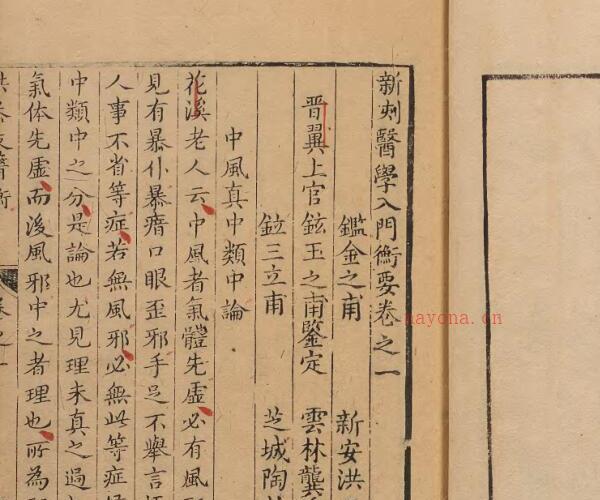 新刺醫學入門衡要卷之一
鑑金之甫 新安洪
晋翼上官鉉玉之甫鑒定 雲林龔
鉝三立甫 芝城陶
中風真中類中論
花溪老人云中風者氣體先虛必有風
見有暴仆暴瘖口眼歪邪手足不舉言
人事不省等症若無風邪必無此等症
中類中之分是論也尤見理未真之過
氣体先虛而後風邪中之者理也所為
nayona.cn